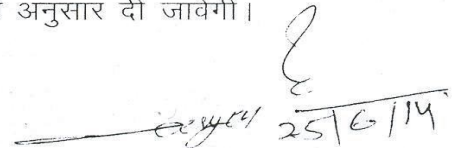 अनुसार दी जावेगी।
25/6/14